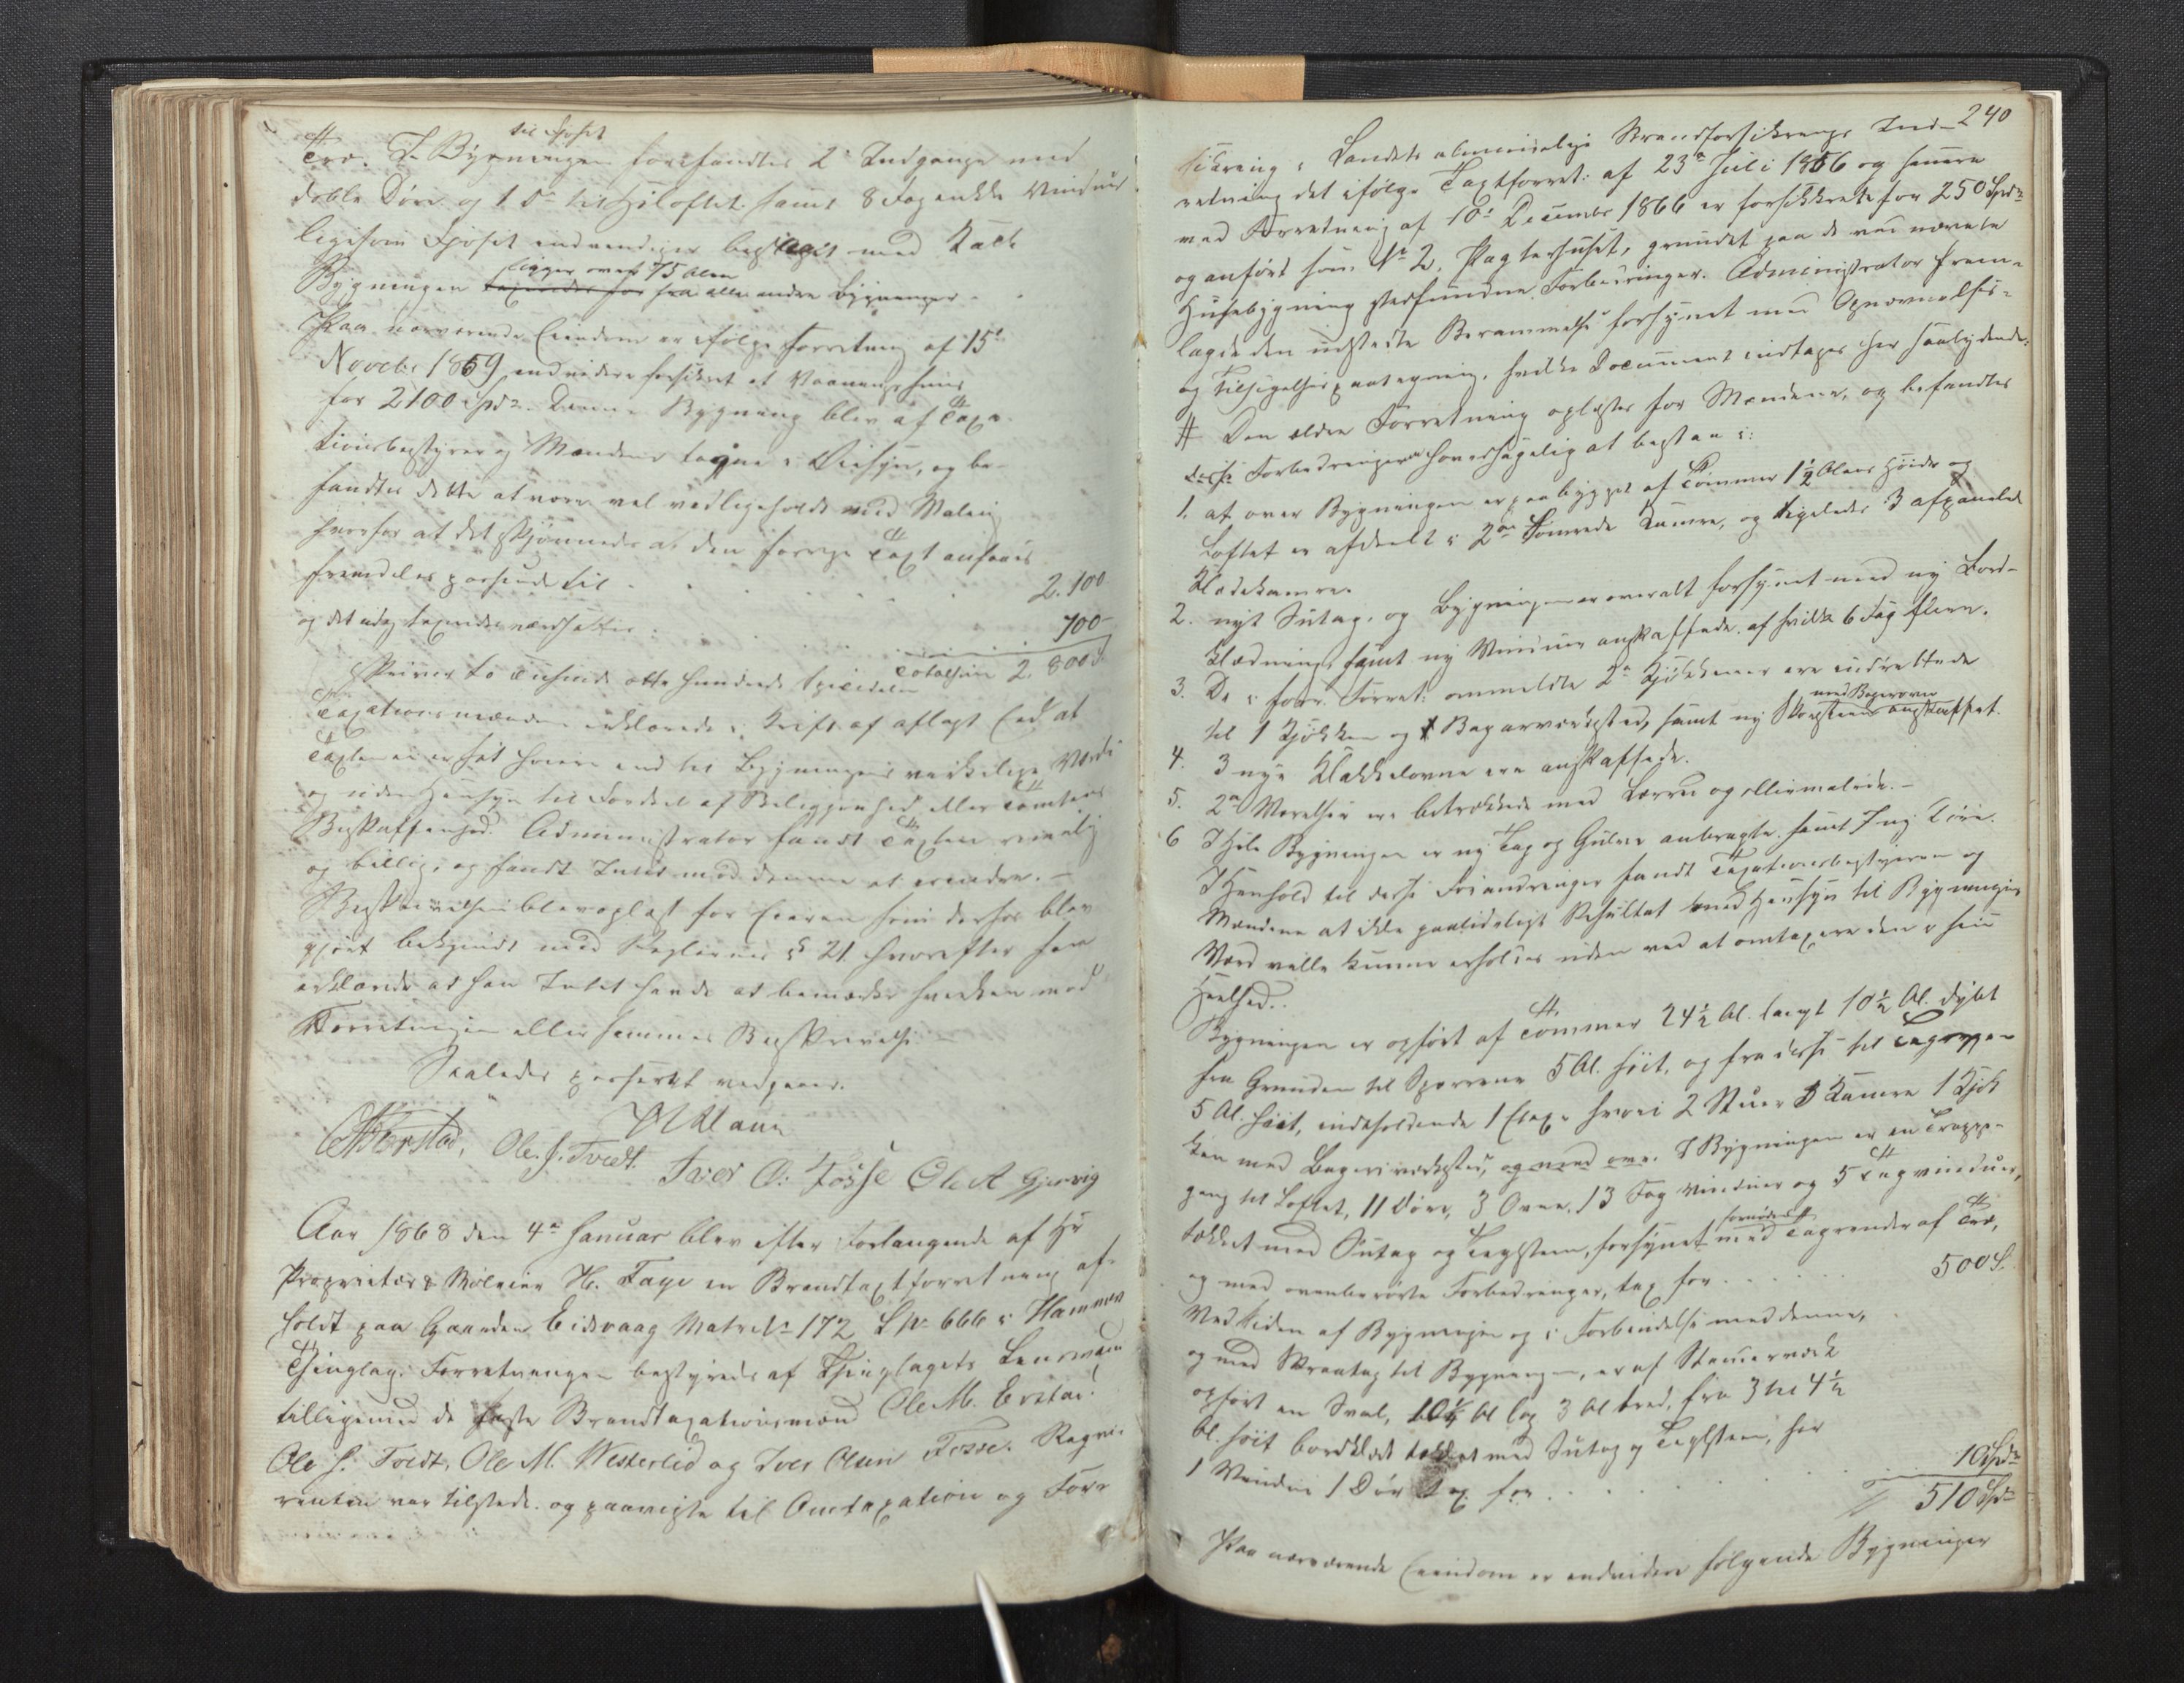 til Fjøset
Træ. I Bygningen forefandtes 2 Indgange med
doble Døre og 1 do til Høloftet samt 8 Fag enkle Vinduer
ligesom Fjøset indvendigen beslaget med Kalk
ligger over 75 Alen
Bygningen fra alle andre Bygninger
Paa nærværende Eiendom er ifølge Forretning af 15de
Novebr 1859 endvidere forsikret et Vaaningshuus
for 2100 Spdr. Denne Bygning blev af Taxa-
tionsbestyrer og Mændene tagne i Øiesyn, og be-
fandtes dette at være vel vedligeholdt med Maling
hvorfor at det skjønnedes at den forrige Taxt ansaaes
fremdeles passende til 2.100
og det idag taxerede ansættes 700
Totalsum 2.800
skriver to Tusinde otte hundrede Speciedaler
Taxationsmændene erklærede i Kraft af aflagt Eed at
Taxten ei er sat høiere end til Bygningens virkelige Værdi
og uden Hensyn til Fordeel af Beliggenhed eller Tomtens
Beskaffenhed. Administrator fandt Taxten rimelig
og billig, og fandt Intet mod denne at erindre. -
Beskrivelsen blev oplæst for Eieren som derhos blev
gjort bekjendt med Reglernes § 21 hvorefter han
erklærede at han Intet havde at bemærke hverken mod
Forretningen eller sammes Beskrivelse
Saaledes passeret vedgaaes.
Ole J. Tvedt. Iver O: Fosse Ole A Gjervig
Aar 1868 den 4de Januar blev efter Forlangende af Hr
Proprietær & Mølleeier H. Faye en Brandtaxtforretning af-
holdt paa Gaarden Eidsvaag Matr No 172 LNo 666 i Hammer
Thinglag. Forretningen bestyredes af Thinglagets Lensmand
tilligemed de faste Brandtaxationsmænd Ole M. Erstad
Ole J. Tvedt, Ole M. Westerlid og Iver Olsen Fosse. Reqvi-
renten var tilstede og paaviste til Omtaxation og For-
240
sikring i Landets almindelige Brandforsikrings Ind-
retning det ifølge Taxtforret: af 23de Juli 1856 og senere
ved Forretning af 10de December 1866 er forsikkrede for 250 Spdr
og anført som No 2, Pagterhuset, grundet paa de ved nævnte
Husebygning stedfundne Forbedringer. Administrator frem-
lagde den udstædte Berammelse forsynet med Opnævnelses-
og Tilsigelsespaategning, hvilke Document indtages her saalydende:
# Den ældre Forretning oplæstes for Mændene, og befandtes
disse Forbedringer hovedsagelig at bestaa i:
1. at over Bygningen er paabygget af Tømmer 1½ Alens Høide og
Loftet er afdeelt i 2de tømrede Kamre, og ligeledes 3 afpanelede
Klædekamre.
2. nyt Sutag, og Bygningen overalt forsynet med ny Bord-
klædning, samt ny Vinduer anskaffede, af hvilke 6 Fag flere.
3. De i forr. Forret: ommeldte 2de Kjøkkener ere indrettede
med Bagerovn
til 1 Kjøkken og 1 Bagerværksted, samt ny Skorsteen anskaffet.
4. 3 nye Kakkelovne ere anskaffede.
5. 2de Værelser ere betrækkede med Lærred og olliemalede. -
6 I Hele Bygningen er ny Tag og Gulve anbragte samt 7 ny Døre.
I Henhold til disse Forandringer fandt Taxationsbestyreren og
Mændene at ikke paalideligt Resultat med Hensyn til Bygningens
Værd ville kunne erholdes uden ved at omtaxere den i sin
Heelhed.
Bygningen er opført af Tømmer 24½ Al. langt 10½ Al. dybt
fra Grunden til Sparrene 5 Al. høit, og fra disse til Tagryggen
5 Al. høit, indeholdende 1 Etage hvori 2 Stuer 3 Kamre 1 Kjøk
ken med Bageriværksted, I Bygningen er en Trappe-
gang til Loftet, 11 Døre, 3 Ovne, 13 Fag Vinduer og 5 Tagvinduer,
fornødent
tækket med Sutag og Taglsteen, forsynet med Tagrender af Træ,
og med ovenberørte Forbedringer, tax for 500 S.
Ved Siden af Bygningen og i Forbindelse med denne,
og med Skraatag til Bygningen, er af Stænerværk
opført en Sval, 10¼ Al lang 3 Al bred, fra 3 til 4½
Al. høit bordklædt tækket med Sutag og Taglsteen, har
1 Vindue 1 Dør tax for 10 Spdr
510 Spdr
Paa nærværende Eiendom er endvidere følgende Bygninger